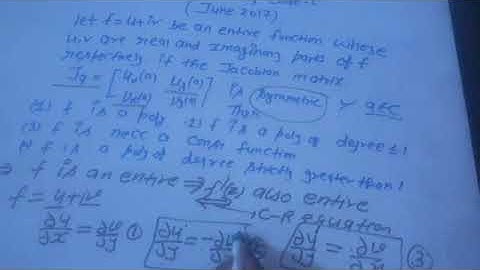 (June 2017)
let f=u+iv be an entire function whose
u,v are real and imagining parts of f
respectively if the Jacobian matrix
Ja = [ux(a) uy(a)
vx(a) vy(a)] is symmetric ∀ a∈C
Then
(1) f is a poly. (2) f is a poly of degree ≤1
(3) f is necc a const function
f is a poly of degree strictly greater than 1
⇒ f is an entire ⇒ f'(z) also entire
f = u+iv C-R equation
∂u/∂x = ∂v/∂y ① ∂u/∂y = -∂v ∂v = ∂v ③